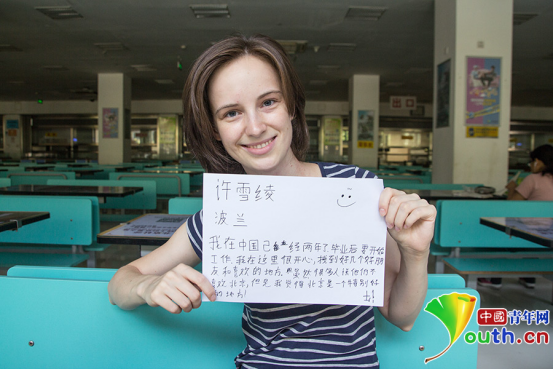 许雪绫
波兰
我在中国已经两年了毕业后要开始
工作。我在这里很开心,找到好几个好朋
友和喜欢的地方。虽然很多人说他们不
喜欢北京,但是我觉得北京是一个特别好
的地方!
中國青年网
Youth.cn